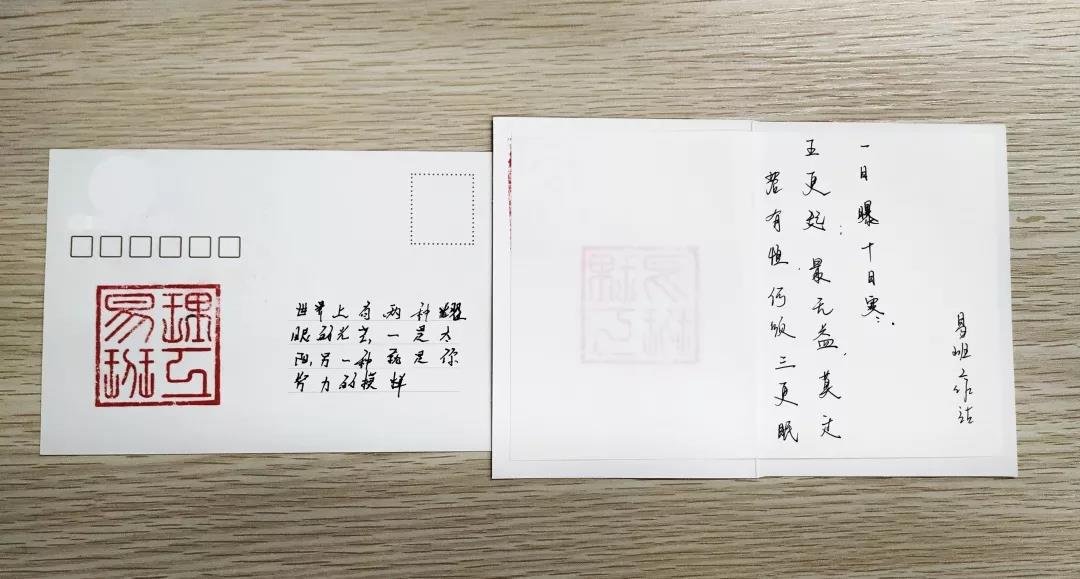 理工
易班
世界上有两种耀
眼的光芒,一是太
阳,另一种就是你
努力的模样
苟有恒,何必三更眠
五更起;最无益,莫过
一日曝十日寒.
易班作站